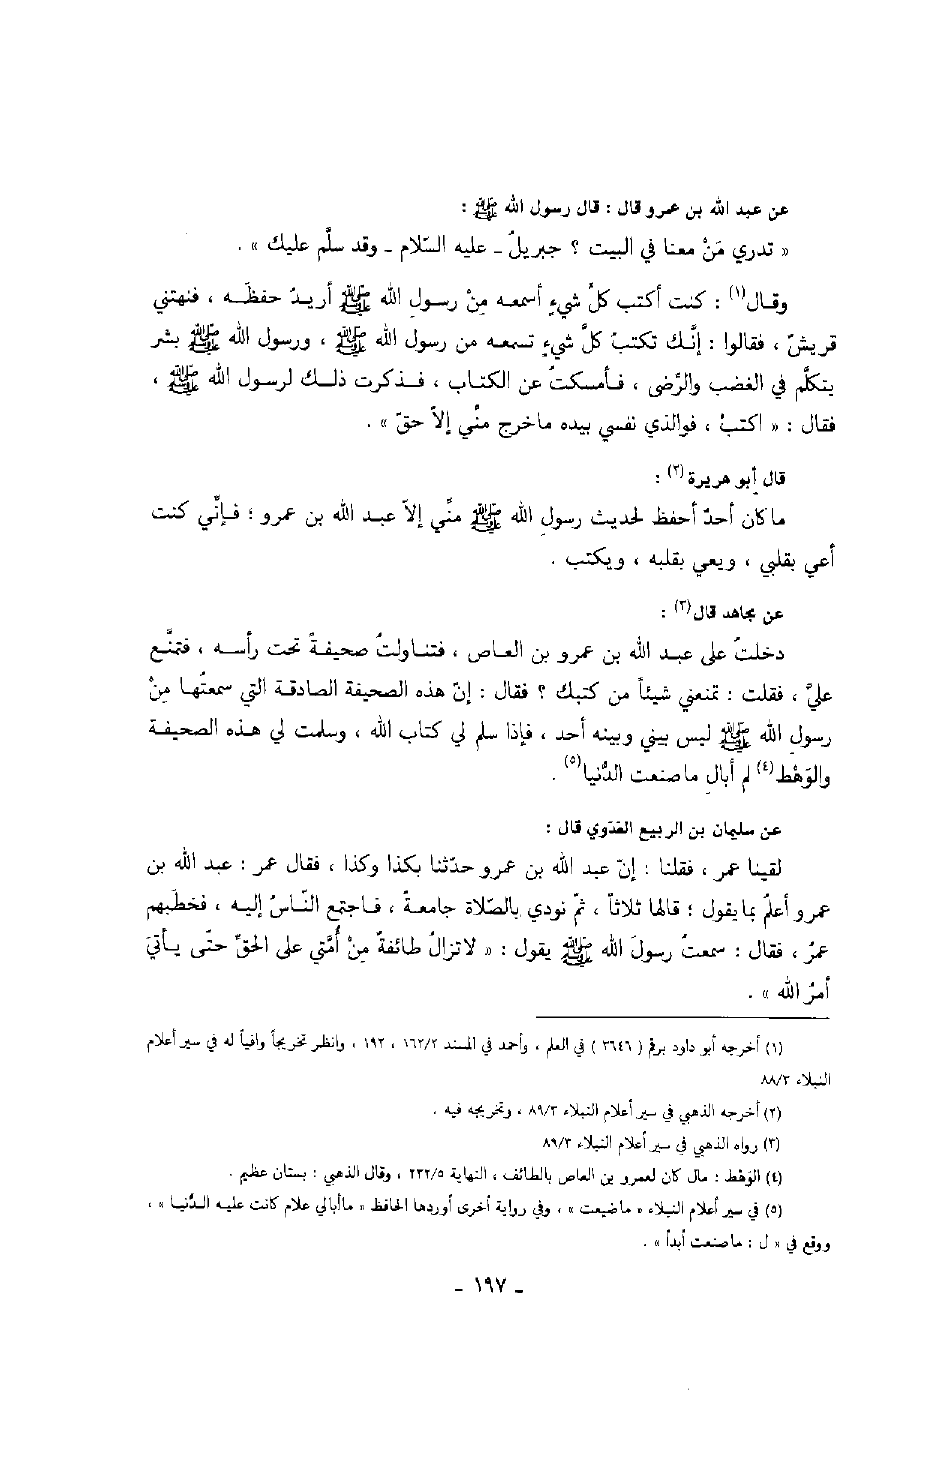 عن عبد الله بن عمرو قال : قال رسول الله ﷺ :
« تدري مَنْ معنا في البيت ؟ جبريلُ ـ عليه السّلام ـ وقد سلَّم عليك » .
وقال(١) : كنت أكتب كلَّ شيءٍ أسمعه مِنْ رسول الله ﷺ أريدُ حفظَه ، فنهتني
قريشٌ ، فقالوا : إنَّك تكتبُ كلَّ شيءٍ تسمعه من رسول الله ﷺ ، ورسول الله ﷺ بشر
يتكلَّم في الغضب والرِّضى ، فأمسكتُ عن الكتاب ، فذكرت ذلك لرسول الله ﷺ ،
فقال : « اكتبْ ، فوالذي نفسي بيده ماخرج منِّي إلاّ حقّ » .
قال أبو هريرة(٢) :
ماكان أحدٌ أحفظ لحديث رسولِ الله ﷺ منِّي إلاّ عبد الله بن عمرو ؛ فإنِّي كنت
أعي بقلبي ، ويعي بقلبه ، ويكتب .
عن مجاهد قال(٣) :
دخلتُ على عبد الله بن عمرو بن العاص ، فتناولتُ صحيفةً تحت رأسه ، فتمنَّع
عليَّ ، فقلت : تمنعني شيئاً من كتبك ؟ فقال : إنّ هذه الصحيفة الصادقة التي سمعتُها مِنْ
رسولِ الله ﷺ ليس بيني وبينه أحد ، فإذا سلم لي كتاب الله ، وسلمت لي هذه الصحيفة
والوَهْط(٤) لم أبالِ ماصنعت الدُّنيا(٥) .
عن سليمان بن الربيع العَدَوي قال :
لقينا عمر ، فقلنا : إنّ عبد الله بن عمرو حدّثنا بكذا وكذا ، فقال عمر : عبد الله بن
عمرو أعلمُ بمايقول ؛ قالها ثلاثاً ، ثمّ نودي بالصّلاة جامعةً ، فاجتمع النّاسُ إليه ، فخطَبهم
عمرُ ، فقال : سمعتُ رسولَ الله ﷺ يقول : « لاتزالُ طائفةٌ مِنْ أُمَّتي على الحقِّ حتّى يأتيَ
أمرُ الله » .
(١) أخرجه أبو داود برقم ( ٣٦٤٦ ) في العلم ، وأحمد في المسند ١٦٢/٢ ، ١٩٢ ، وانظر تخريجاً وافياً له في سير أعلام
النبلاء ٨٨/٣
(٢) أخرجه الذهبي في سير أعلام النبلاء ٨٩/٣ ، وتخريجه فيه .
(٣) رواه الذهبي في سير أعلام النبلاء ٨٩/٣
(٤) الوَهْط : مال كان لعمرو بن العاص بالطائف ، النهاية ٢٣٢/٥ ، وقال الذهبي : بستان عظيم .
(٥) في سير أعلام النبلاء « ماضيعت » ، وفي رواية أخرى أوردها الحافظ « ماأبالي علام كانت عليه الدُّنيا » ،
ووقع في « ل : ماصنعت أبداً » .
ـ ١٩٧ ـ